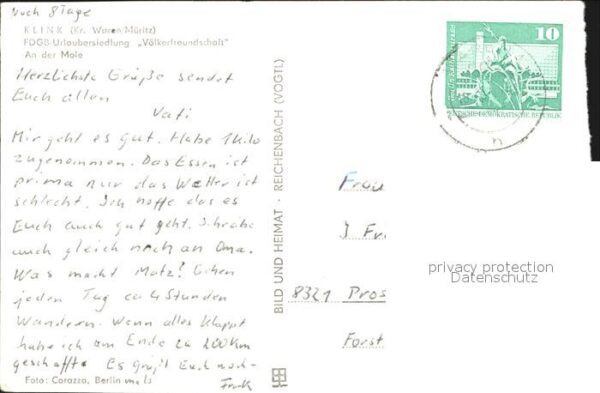 Noch 8 Tage
KLINK (Kr. Waren/Müritz)
FDGB-Urlaubersiedlung „Völkerfreundschaft"
An der Mole
Herzlichste Grüße sendet
Euch allen
Vati
Mir geht es gut. Habe 1 Kilo
zugenommen. Das Essen ist
prima nur das Wetter ist
schlecht. Ich hoffe das es
Euch auch gut geht. Schreibe
auch gleich noch an Oma.
Was macht Matz? Gehen
jeden Tag ca 4 Stunden
Wandern. Wenn alles klappt
habe ich am Ende ca 200 Km
geschafft. Es grüßt Euch noch-
mals Frank
Foto: Corazza, Berlin
BILD UND HEIMAT · REICHENBACH (VOGTL)
10
DEUTSCHE DEMOKRATISCHE REPUBLIK
Frau
J Fr.
8321 Pros
Forst
privacy protection
Datenschutz